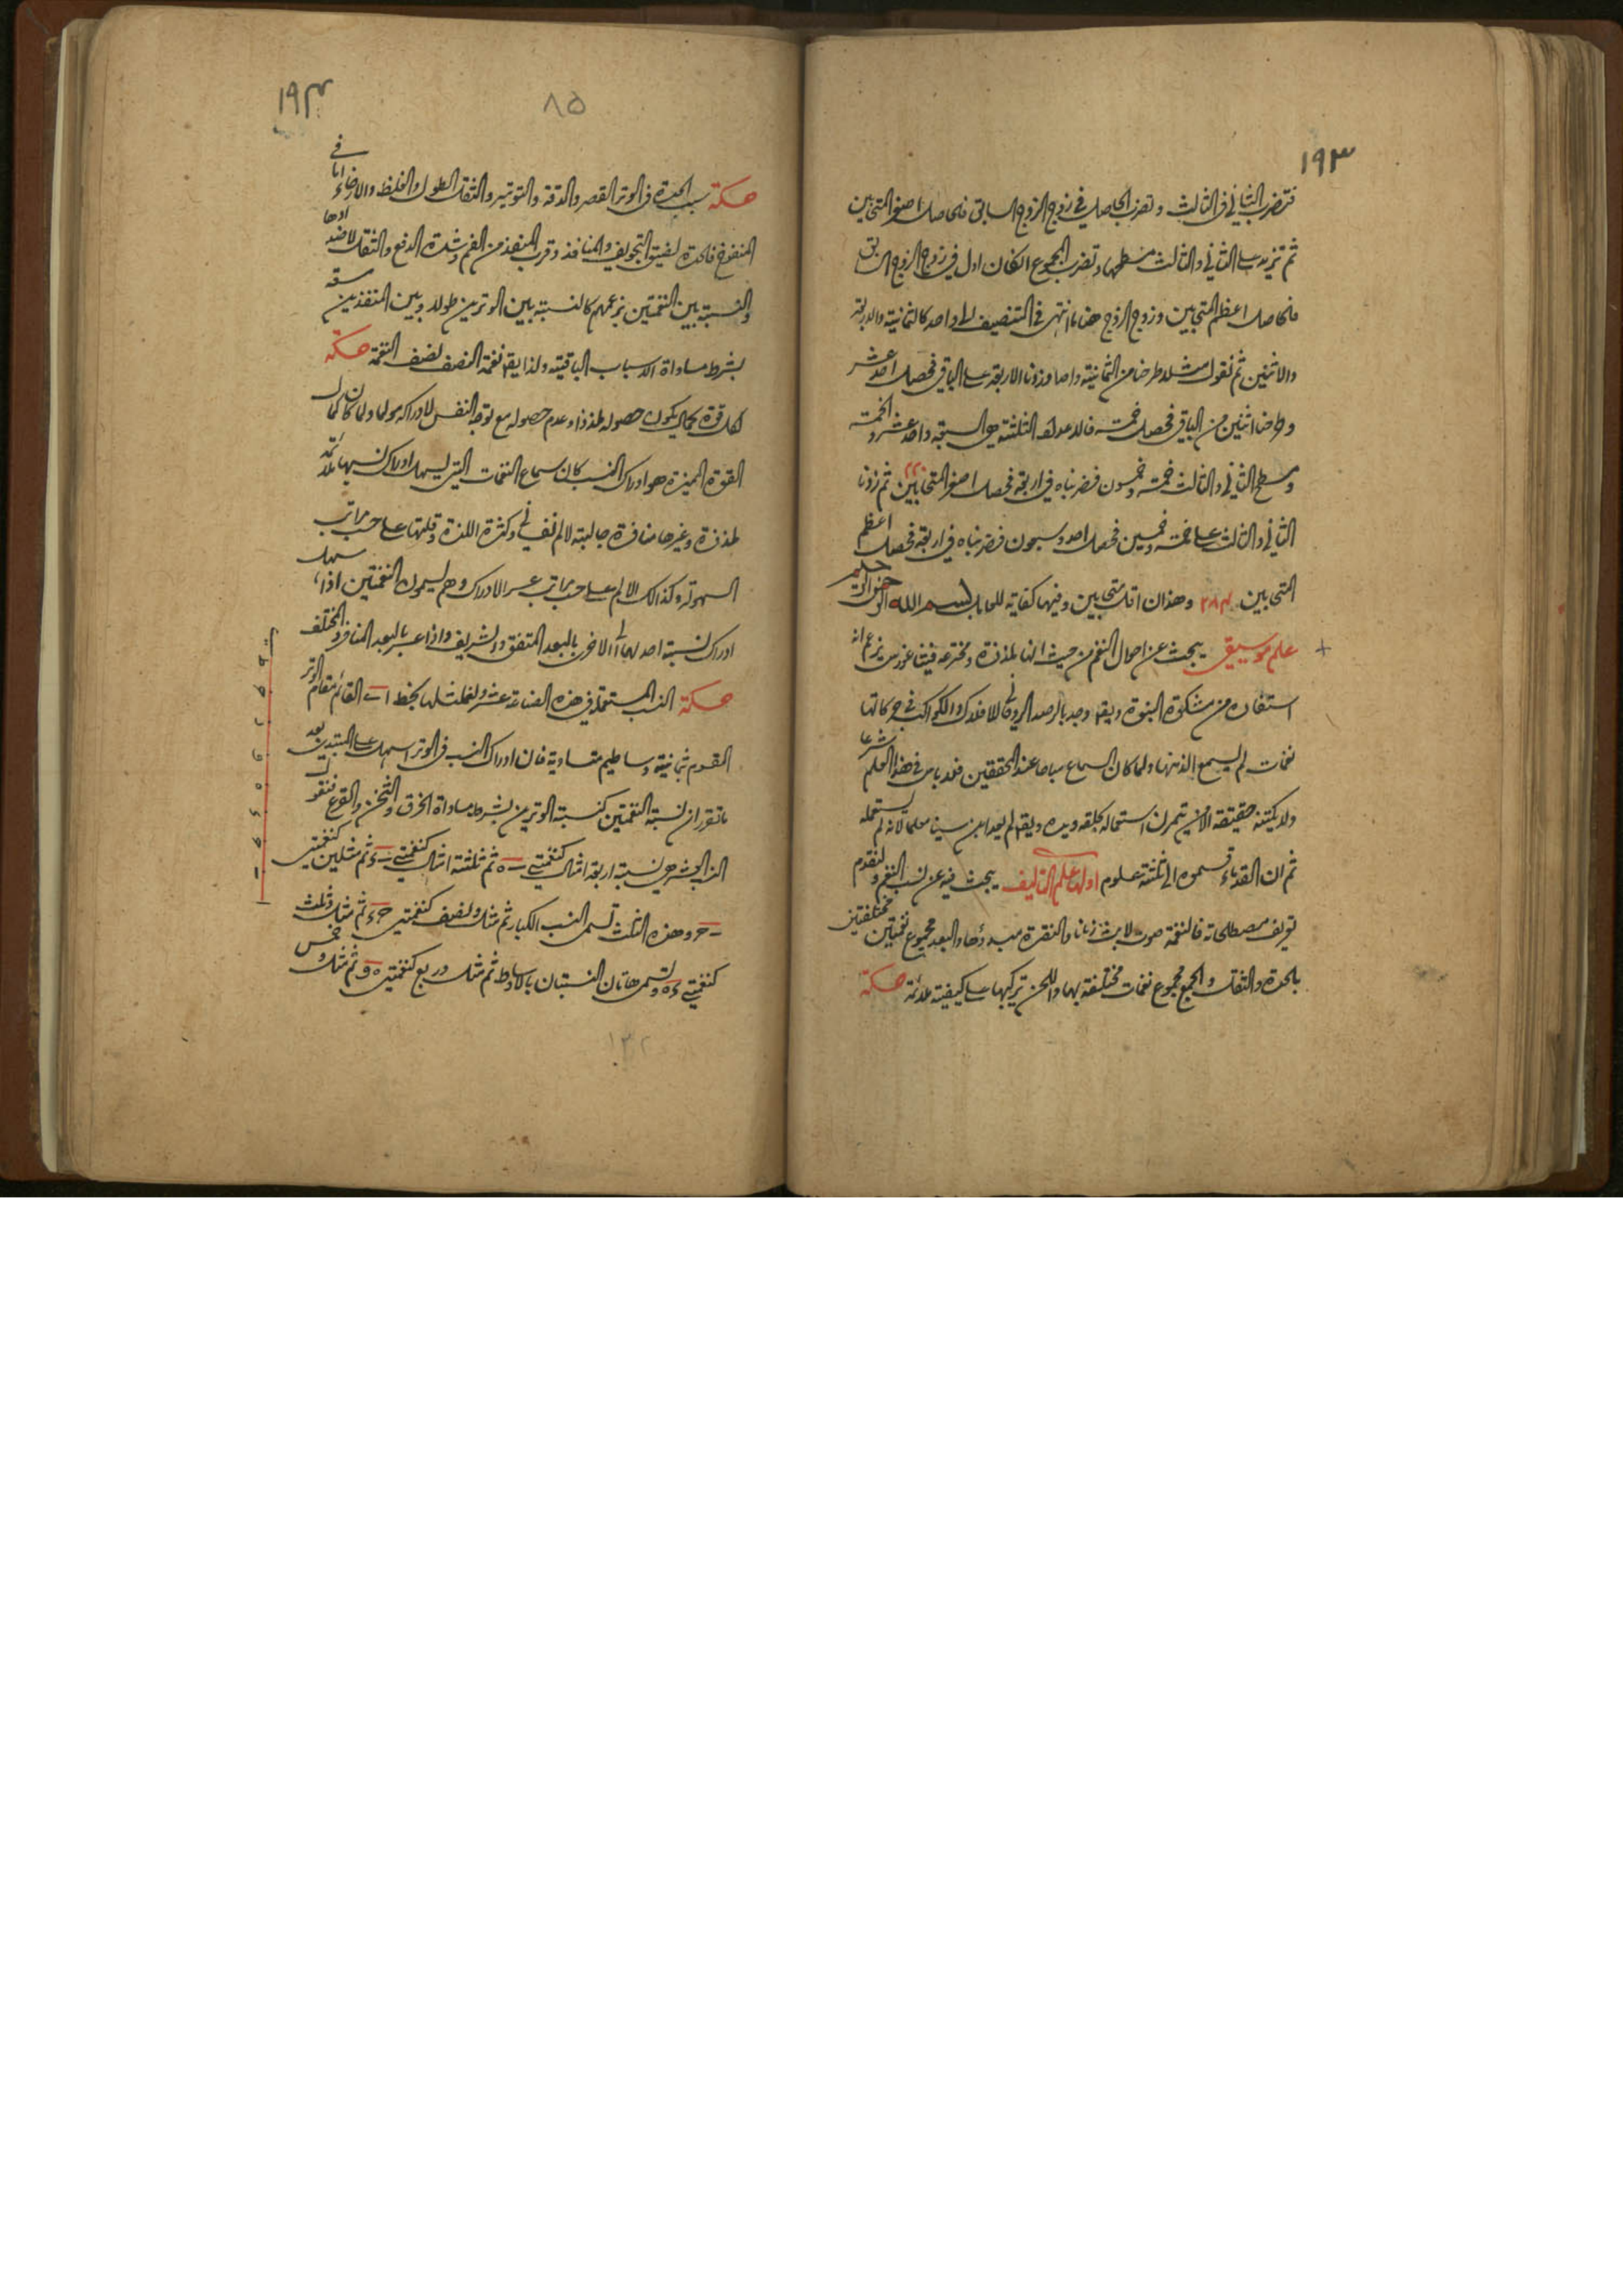 ١٩٣
فنضرب الثاني في الثالث ونضرب الحاصل في زوج الزوج السابق فالحاصل اصغر المتحابين
ثم نزيد على الثاني والثالث مسطحهما ونضرب المجموع انكان اول في زوج الزوج السابق
فالحاصل اعظم المتحابين وزوج الزوج هنا ما انتهى في التنصيف الى واحد كالثمانية والاربعة
والاثنين ثم نقول مثلا طرحنا من الثمانية واحدا وزدنا الاربعة على الباقي فحصل احد عشر
وطرحنا اثنين من الباقي فحصل خمسة فالاعداد الثلثة هي السبعة واحد عشر والخمسة
ومسطح الثاني والثالث خمسة وخمسون فضربناه في اربعة فحصل اصغر المتحابين ٢٢٠ ثم زدنا
الثاني والثالث على خمسة وخمسين فحصل احد وسبعون فضربناه في اربعة فحصل اعظم
المتحابين ٢٨٤ وهذان اقل متحابين وفيها كفاية للحاسب بسم الله الرحمن الرحيم
علم موسيقى يبحث عن احوال النغم من حيث انها لمذذة ومخترعه فيثاغورس يزعم انه
استفاده من مشكوة النبوة ويقه وجد بالرصد الروحاني للافلاك والكواكب في حركاتها
نغمات لم يسمع الذ منها ولما كان السماع مباحا عند المحققين فلا باس في هذا العلم شرعا
ولا يكتنه حقيقته الا من تمرن استعماله بحلقه ويده ويقه لم يعد ابن سينا معلما لانه لم يستعمله
ثم ان القدماء قسموه الى ثلثة علوم اولها علم التاليف يبحث فيه عن نسب النغم ولنقدم
تعريف مصطلحاته فالنغمة صوت لابث زمانا والنقرة مبدؤها والبعد مجموع نغمتين مختلفتين
بالحدة والثقل والجمع مجموع نغمات مختلفة بهما واللحن تركيبها على كيفية ملائمة حكمة
١٩٤
٨٥
حكمة سبب الحدة في الوتر القصر والدقة والتوتير والثقل الطول والغلظ والارخاء اما في
المنفوخ فالحدة لضيق التجويف والمنافذ وقرب المنفذ من الفم وشدة الدفع والثقل لاضدادها
والنسبة بين النغمتين بزعمهم كالنسبة بين الوترين طولا وبين المنفذين سعة
بشرط مساواة الاسباب الباقية ولذا يقه نغمة النصف نصف النغمة حكمة
لكل قوة كمال يكون حصوله ملذذا وعدم حصوله مع توجه النفس لادراكه مولما ولما كان كمال
القوة المميزة هو ادراك النسب كان سماع النغمات التي يسهل ادراك نسبها ملائمة
لمذذة وغيرها منافرة جالبة لالم نفساني وكثرة اللذة وقلتها على حسب مراتب
السهولة وكذالك الالم على حسب مراتب عسر الادراك وهم يسمون النغمتين اذا سهل
ادراك نسبة احدهما الى الاخرى بالبعد المتفق والشريف واذا عسر بالبعد المتنافر والمختلف
حكمة النسب المستعملة في هذه الصناعة عشر ولنمثلها بخط ا ب القائم مقام الوتر
المقسوم بثمانية وساطيم متساوية فان ادراك النسب في الوتر اسهل على المبتدئ بعد
ما تقرر ان نسبة النغمتين كنسبة الوترين بشرط مساواة الخرق والثخن والقرع فنقول
النسب العشر هي نسبة اربعة امثال كنغمتي ثم ثلثة امثال كنغمتي ثم مثلين كنغمتي
وهذه الثلث تسمى النسب الكبار ثم مثل ونصف كنغمتي ثم مثل وثلث
كنغمتي وتسمى هاتان النسبتان بالاوساط ثم مثل وربع كنغمتي ثم مثل وخمس
١٣٢